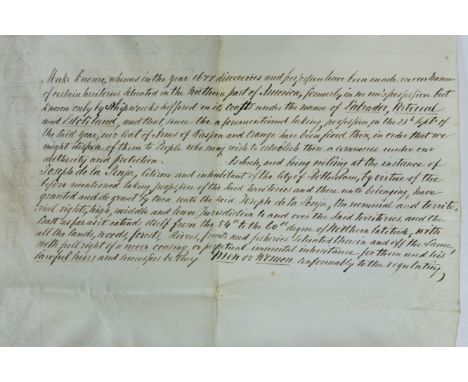 Make known, whereas in the year 1677 discoveries and possession have been made in our Name
of certain territories situated in the Northern part of America, formerly in no one's possession but
known only by Shipwrecks suffered on its Coasts under the name of Labrador,
and Estotiland, and that since the aforementioned taking possession on the 23d Sept of
the said year, our Coat of Arms of Nassau and Orange have been fixed there, in order that we
might dispose of them to People who may wish to establish there a commerce under our
authority and protection. Is Such, and being willing at the instance of
Joseph de la Penja, Citizen and inhabitant of the City of Rotterdam, by virtue of the
before mentioned taking possession of the said territories and there unto belonging, have
granted and do grant by these unto the said Joseph de la Penja, the nominal and territo-
rial rights, high, middle and lower Jurisdiction to and over the Said territories, and the
East as far as it extends itself from the 54th to the 60th degree of Northern latitude, with
all the lands, woods, forest, Rivers, fruits and fisheries situated therein and off the Same,
with full right of a never ceasing, or perpetual immediate inheritance for them and his
lawful heirs and successors be they Men or Women conformably to the regulating